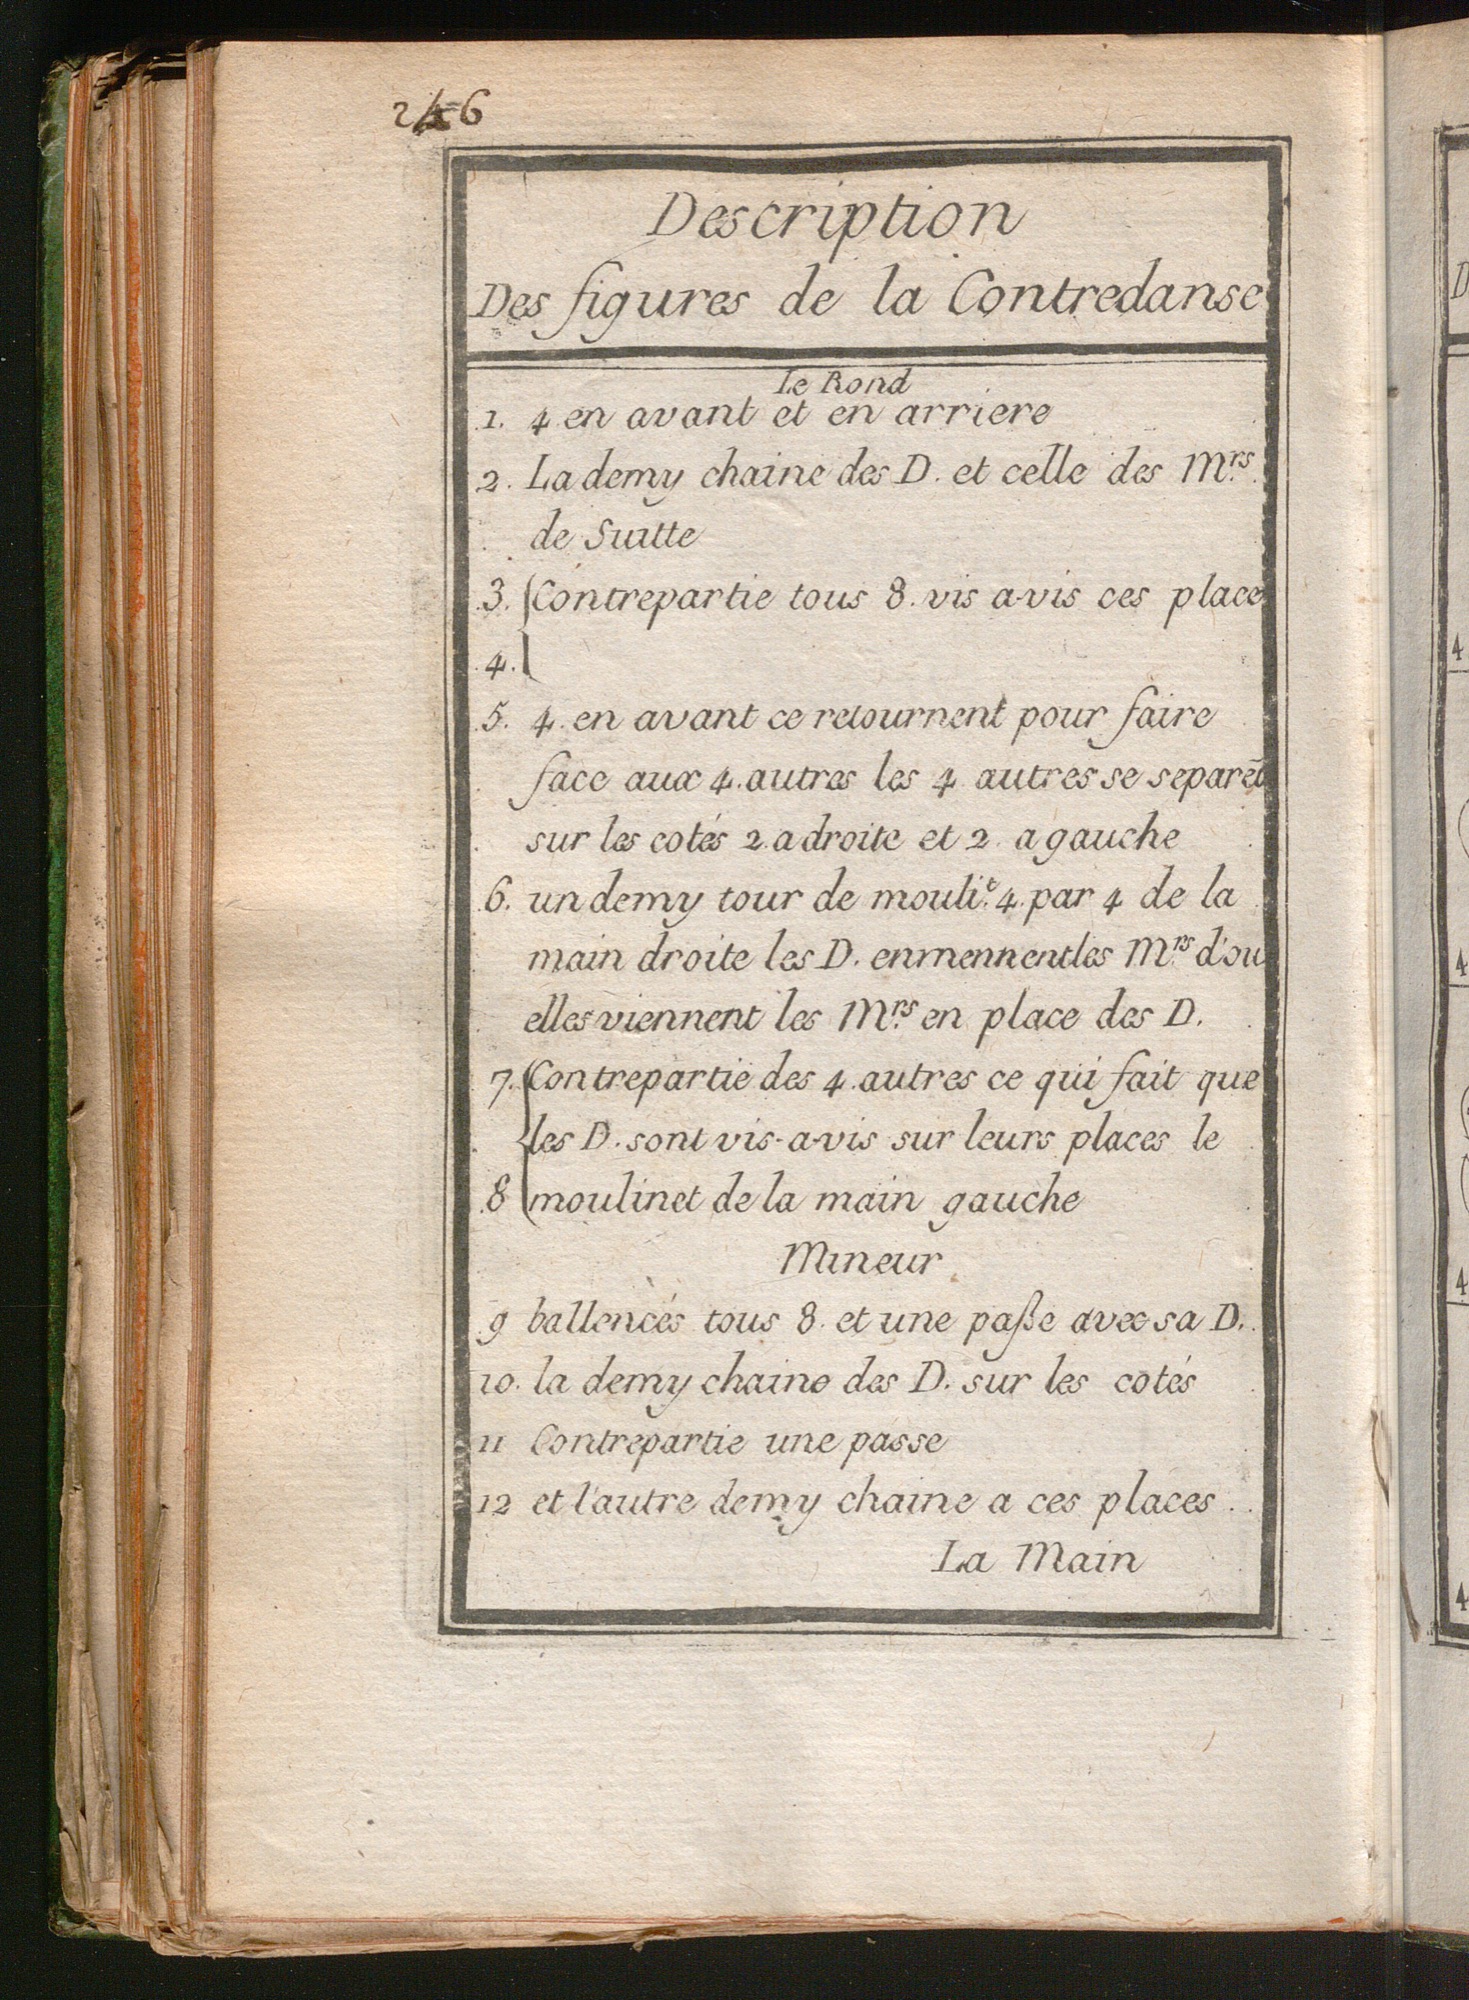 246
Description
Des figures de la Contredanse
Le Rond
1. 4 en avant et en arriere
2. La demy chaine des D. et celle des Mrs.
de Suitte
3. Contrepartie tous 8. vis a-vis ces place
4.
5. 4. en avant ce retournent pour faire
face aux 4. autres les 4 autres se separēt
sur les cotés 2. a droite et 2. a gauche
6. un demy tour de moulit. 4. par 4 de la
main droite les D. enmennent les Mrs. d'ou
elles viennent les Mrs. en place des D.
7. Contrepartie des 4. autres ce qui fait que
les D. sont vis-a-vis sur leurs places le
8 moulinet de la main gauche
Mineur
9 ballencés tous 8. et une paße avec sa D.
10. la demy chaine des D. sur les cotés
11 Contrepartie une passe
12 et l'autre demy chaine a ces places.
La Main
4
4
4
4
D